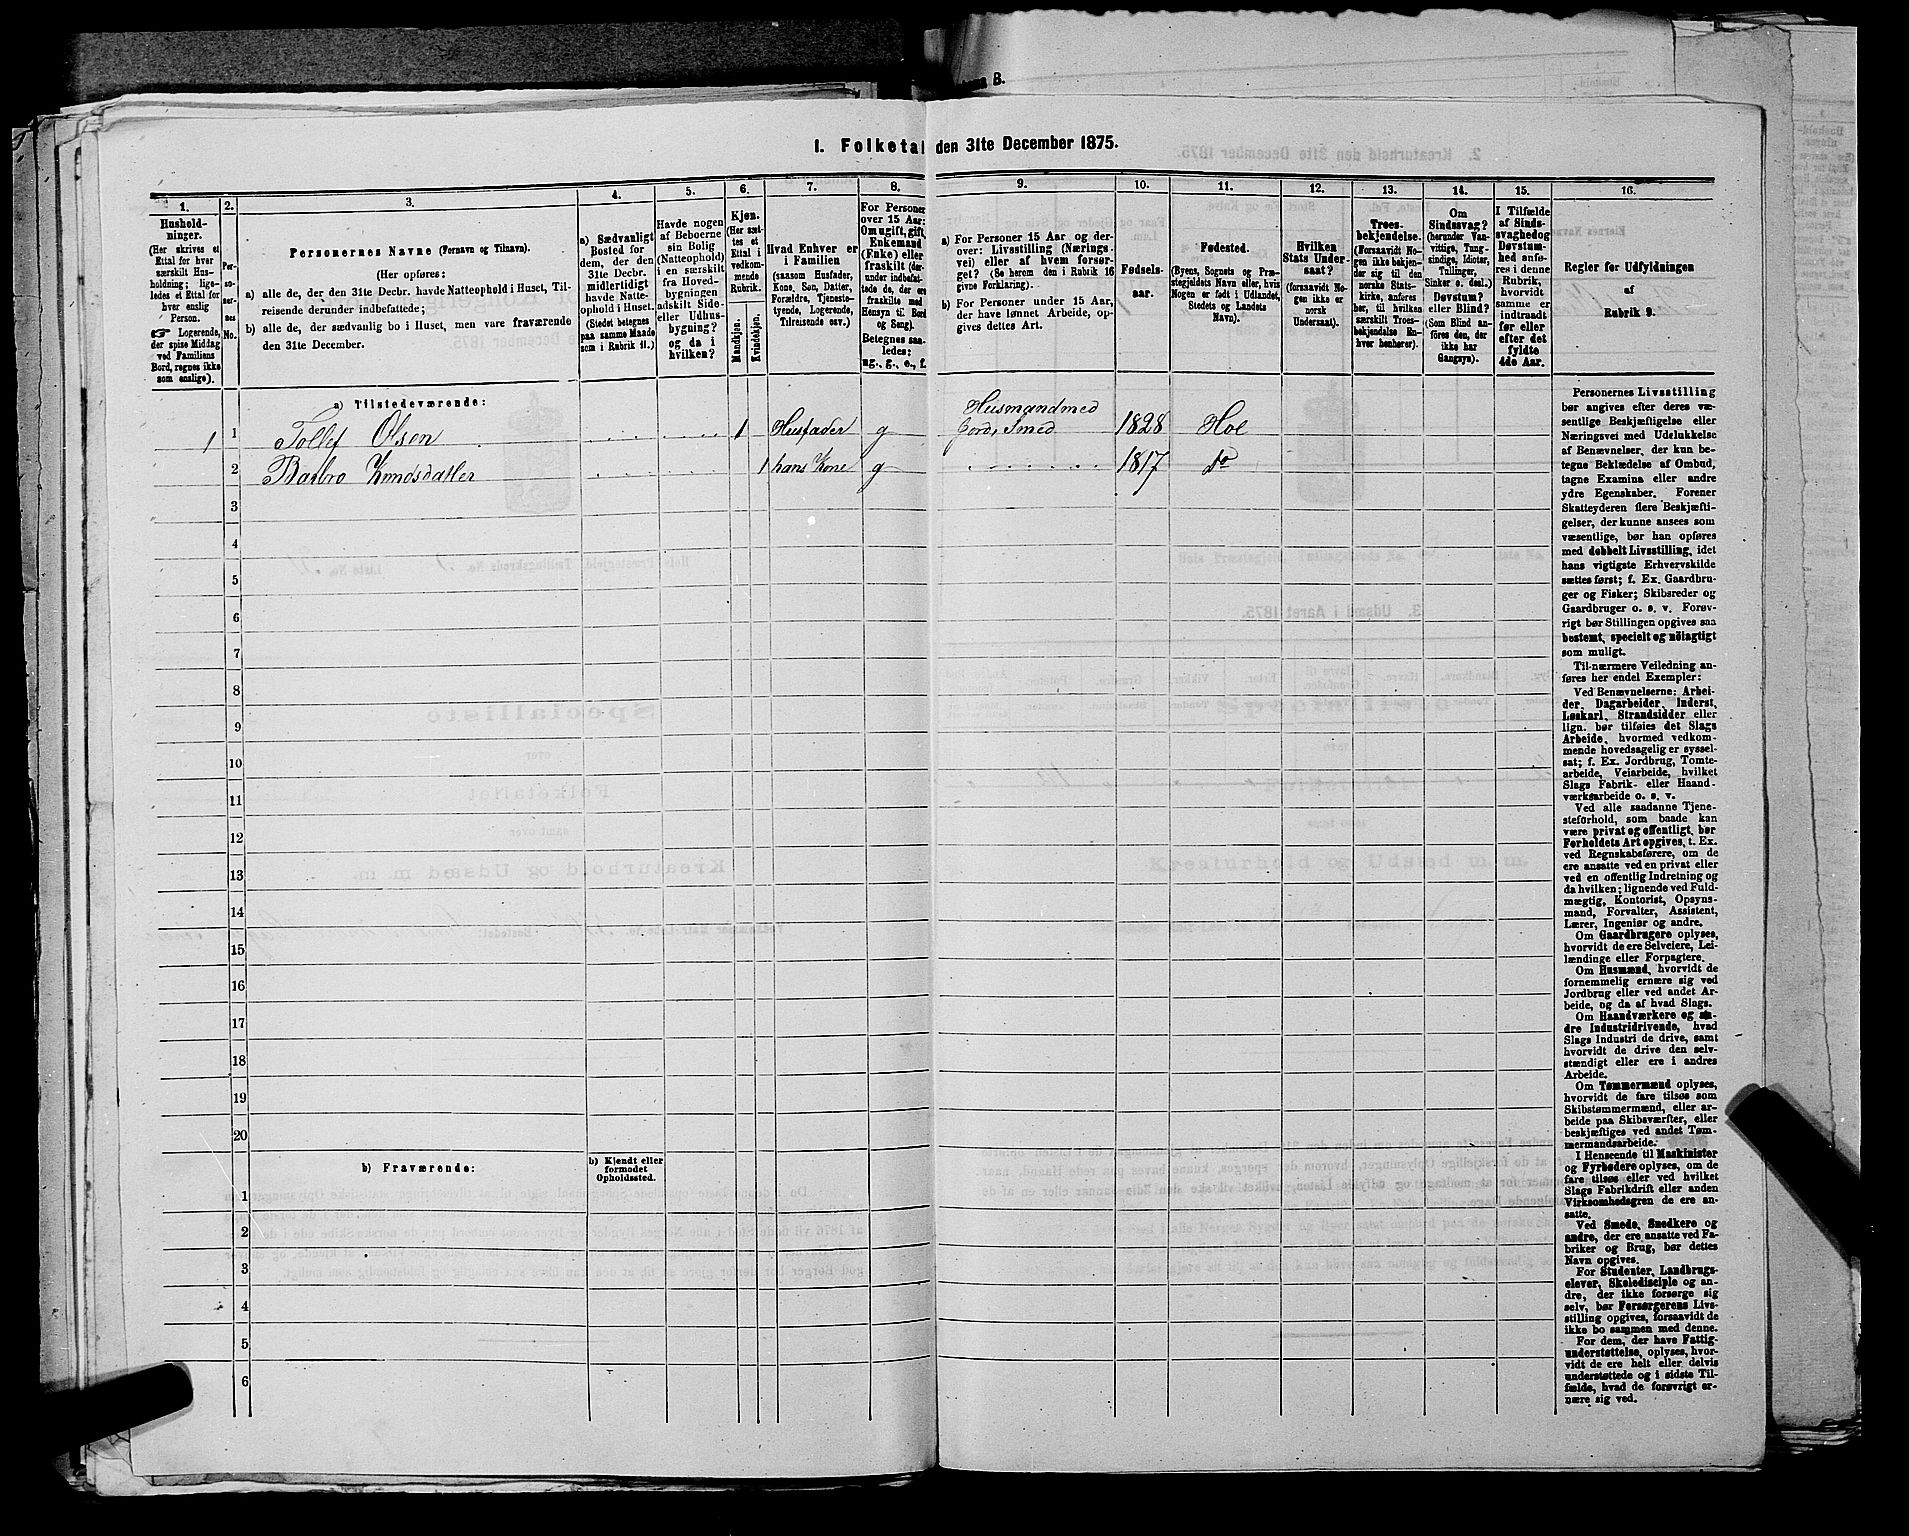 1. Folketal den 31te December 1875.
1.
Hushold-
ninger.
(Her skrives et
Ettal for hver
særskilt Hus-
holdning; lige-
ledes et Ettal for
hver enslig
Person.
☞ Logerende,
der spise Middag
ved Familiens
Bord, regnes ikke
som enslige).
2.
Per-
so-
ner-
nes
No.
3.
Personernes Navne (Fornavn og Tilnavn).
(Her opføres:
a) alle de, der den 31te Decbr. havde Natteophold i Huset, Til-
reisende derunder indbefattede;
b) alle de, der sædvanlig bo i Huset, men vare fraværende
den 31te December.
4.
a) Sædvanligt
Bosted for
dem, der den
31te Decbr.
midlertidigt
havde Natte-
ophold i Huset.
(Stedet betegnes
paa samme Maade
som i Rubrik 11.)
5.
Havde nogen
af Beboerne
sin Bolig
(Natteophold)
i en særskilt
fra Hoved-
bygningen
adskilt Side-
eller Udhus-
bygning?
og da i
hvilken?
6.
Kjøn.
(Her sæt-
tes et
Ettal i
vedkom-
mende
Rubrik.
Mandkjøn.
Kvindekjøn.
7.
Hvad Enhver er
i Familien
(saasom Husfader,
Kone, Søn, Datter,
Forældre, Tjeneste-
tyende, Logerende,
Tilreisende osv.)
8.
For Personer
over 15 Aar:
Om ugift, gift,
Enkemand
(Enke) eller
fraskilt (der-
under indbefat-
tede de, der ere
fraskilte med
Hensyn til Bord
og Seng).
Betegnes saa-
ledes:
ug., g., e., f.
9.
a) For Personer 15 Aar og der-
over: Livsstilling (Nærings-
vei) eller af hvem forsør-
get? (Se herom den i Rubrik 16
givne Forklaring).
b) For Personer under 15 Aar,
der have lønnet Arbeide, op-
gives dettes Art.
10.
Fødsels-
aar.
11.
Fødested.
(Byens, Sognets og Præ-
stegjeldets Navn eller, hvis
Nogen er født i Udlandet,
Stedets og Landets
Navn).
12.
Hvilken
Stats Under-
saat?
(forsaavidt No-
gen ikke er
norsk
Undersaat).
13.
Troes-
bekjendelse.
(Forsaavidt No-
gen ikke bekjen-
der sig til den
norske Stats-
kirke, anføres
her, til hvilken
særskilt Troes-
bekjendelse En-
hver henhører).
14.
Om
Sindssvag?
(herunder Van-
vittige, Tung-
sindige, Idioter,
Tullinger,
Sinker o. desl.)
Døvstum?
eller Blind?
(Som Blind an-
føres den, der
ikke har
Gangsyn).
15.
I Tilfælde
af Sinds-
svaghed og
Døvstum-
hed anfø-
res i denne
Rubrik,
hvorvidt
samme er
indtraadt
før eller
efter det
fyldte
4de Aar.
16.
Regler for Udfyldningen
af
Rubrik 9.
a) Tilstedeværende:
1 1 Tollef Olsen 1 Husfader g Husmand med
Jord, Smed 1828 Hol
2 Barbro Knudsdatter 1 hans Kone g 1817 do
3
4
5
6
7
8
9
10
11
12
13
14
15
16
17
18
19
20
b) Fraværende:
b) Kjendt eller
formodet
Opholdssted.
1
2
3
4
5
6
Personernes Livsstilling
bør angives efter deres væ-
sentlige Beskjæftigelse eller
Næringsvei med Udelukkelse
af Benævnelser, der kun be-
tegne Beklædelse af Ombud,
tagne Examina eller andre
ydre Egenskaber. Forener
Skatteyderen flere Beskjæfti-
gelser, der kunne ansees som
væsentlige, bør han opføres
med dobbelt Livsstilling, idet
hans vigtigste Erhvervskilde
sættes først; f. Ex. Gaardbru-
ger og Fisker; Skibsreder og
Gaardbruger o. s. v. Forøv-
rigt bør Stillingen opgives saa
bestemt, specielt og nöiagtigt
som muligt.
Til nærmere Veiledning an-
føres her endel Exempler:
Ved Benævnelserne: Arbei-
der, Dagarbeider, Inderst,
Løskarl, Strandsidder eller
lign. bør tilføies det Slags
Arbeide, hvormed vedkom-
mende hovedsagelig er syssel-
sat; f. Ex. Jordbrug, Tomte-
arbeide, Veiarbeide, hvilket
Slags Fabrik- eller Haand-
værksarbeide o. s. v.
Ved alle saadanne Tjene-
steforhold, som baade kan
være privat og offentligt, bør
Forholdets Art opgives, t. Ex.
ved Regnskabsførere, om de
ere ansatte ved en privat eller
ved en offentlig Indretning og
da hvilken; lignende ved Fuld-
mægtig, Kontorist, Opsyns-
mand, Forvalter, Assistent,
Lærer, Ingeniør og andre.
Om Gaardbrugere oplyses,
hvorvidt de ere Selveiere, Lei-
lændinge eller Forpagtere.
Om Husmænd, hvorvidt de
fornemmelig ernære sig ved
Jordbrug eller ved andet Ar-
beide, og da af hvad Slags.
Om Haandværkere og an-
dre Industridrivende, hvad
Slags Industri de drive, samt
hvorvidt de drive den selv-
stændigt eller ere i andres
Arbeide.
Om Tømmermænd oplyses,
hvorvidt de fare tilsøs som
Skibstømmermænd, eller ar-
beide paa Skibsværfter, eller
beskjæftiges ved andet Tøm-
mermandsarbeide.
I Henseende til Maskinister
og Fyrbødere oplyses, om de
fare tilsøs eller ved hvilket
Slags Fabrikdrift eller anden
Virksomhedsgren de ere an-
satte.
Ved Smede, Snedkere og
andre, der ere ansatte ved Fa-
briker og Brug, bør dettes
Navn opgives.
For Studenter, Landbrugs-
elever, Skoledisciple og an-
dre, der ikke forsørge sig
selv, bør Forsørgerens Livs-
stilling opgives, forsaavidt de
ikke bo sammen med denne.
For dem, der have Fattig-
understøttelse, oplyses, hvor-
vidt de ere helt eller delvis
understøttede og i sidste Til-
fælde, hvad de forøvrigt er-
nære sig ved.